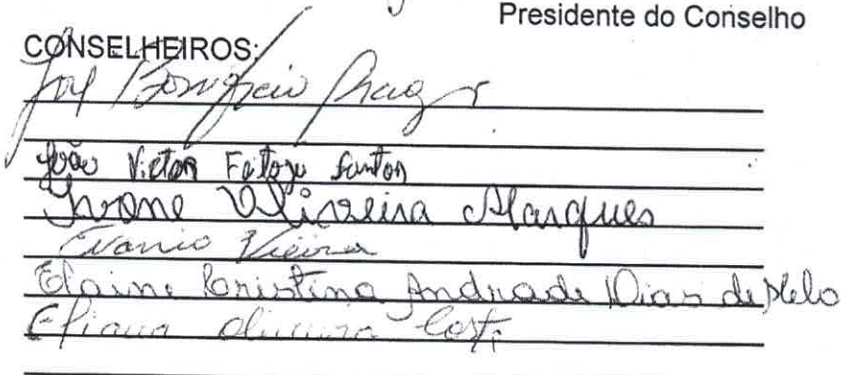 Presidente do Conselho
CONSELHEIROS:
José Bonifácio Braga
João Victor Feitoza Santos
Ivone Oliveira Marques
Evanio Vieira
Elaine Cristina Andrade Dias de Melo
Eliana Oliveira Costa